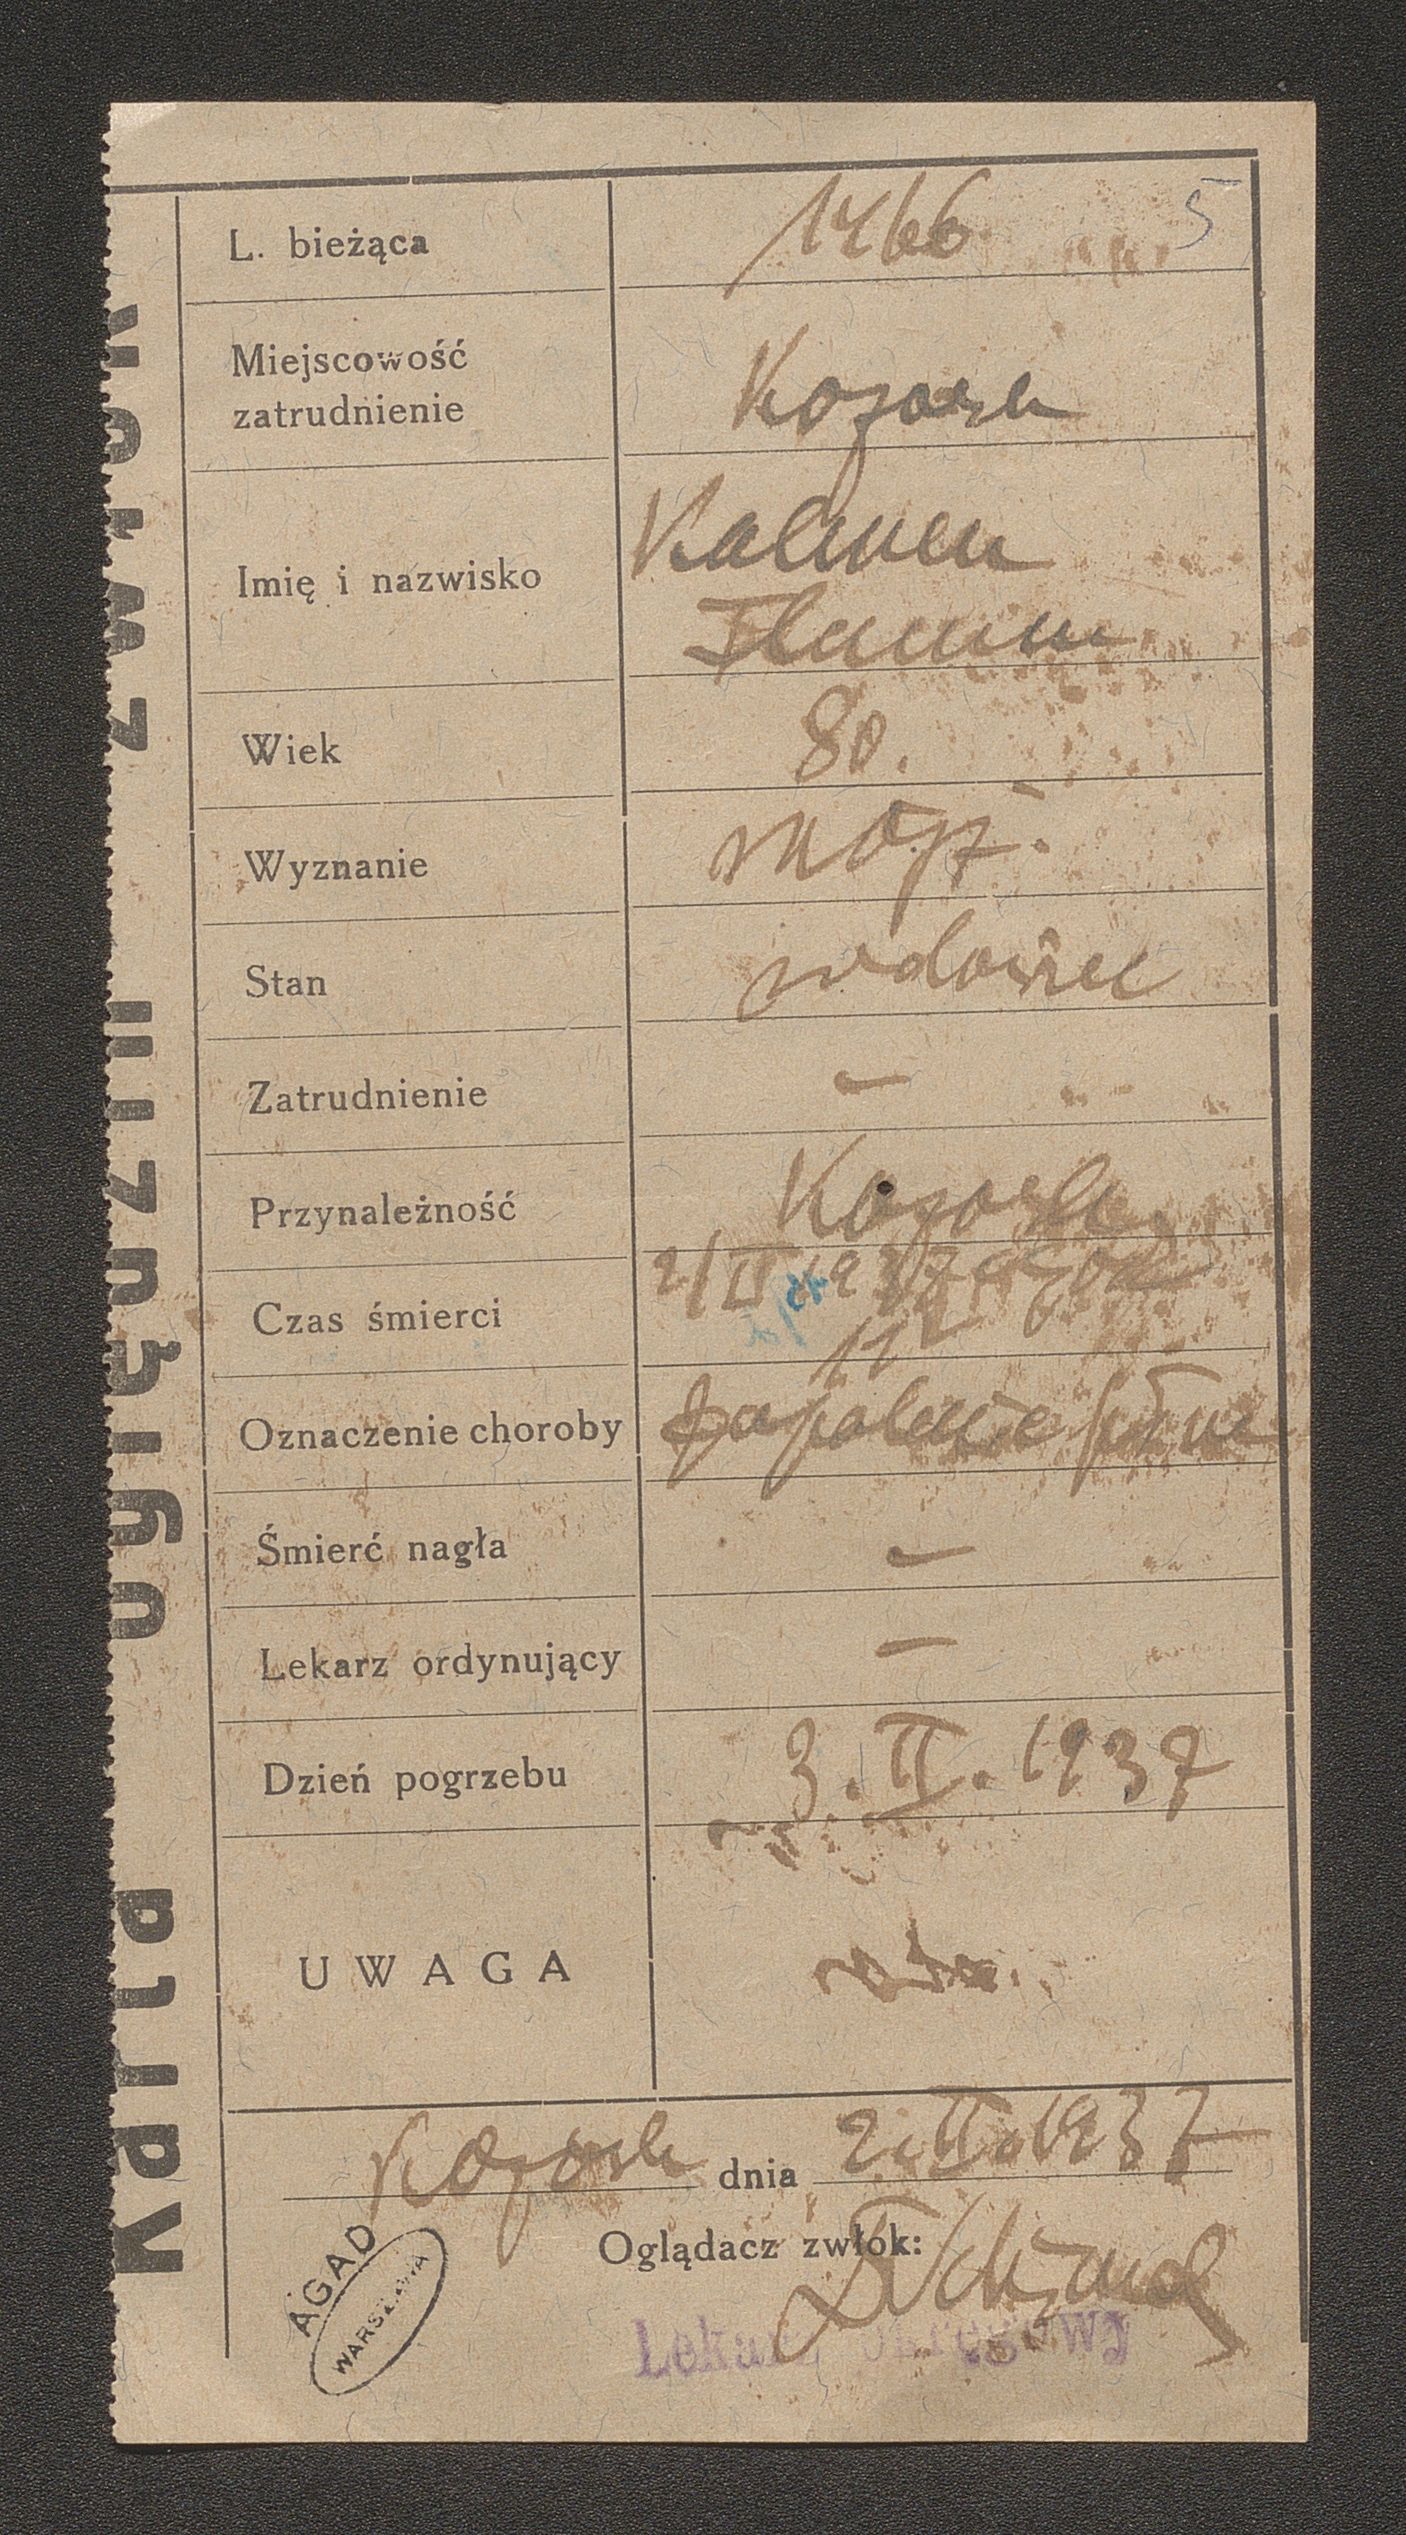 Karta oględzin zwłok
L. bieżąca 1466 5
Miejscowość
zatrudnienie Kozowa
Imię i nazwisko Kalmen
Flamm
Wiek 80.
Wyznanie mojż.
Stan wdowiec
Zatrudnienie –
Przynależność Kozowa
Czas śmierci 2/II 1937 godz
11
Oznaczenie choroby Zapalenie płuc
Śmierć nagła –
Lekarz ordynujący –
Dzień pogrzebu 3. II. 1937
UWAGA
Kozowa dnia 2. II. 1937
Oglądacz zwłok:
Lekarz okręgowy
AGAD
WARSZAWA